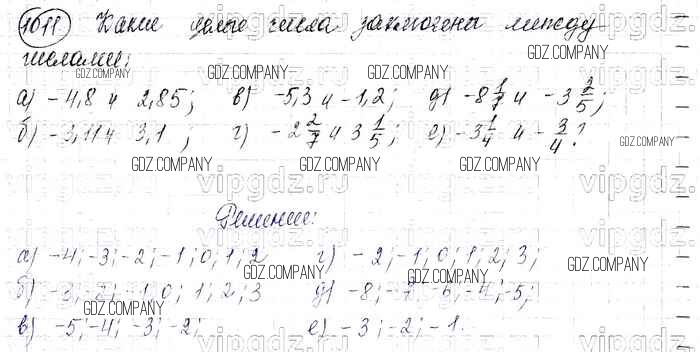 1011 Какие целые числа заключены между
числами:
GDZ.COMPANY GDZ.COMPANY GDZ.COMPANY
а) -4,8 и 2,85; в) -5,3 и -1,2; д) -8 1/7 и -3 2/5;
б) -3,11 и 3,1; г) -2 2/7 и 3 1/5; е) -3 1/4 и -3/4?
GDZ.COMPANY
GDZ.COMPANY GDZ.COMPANY
vipgdz.ru vipgdz.ru vipgdz.ru
Решение:
а) -4; -3; -2; -1; 0; 1; 2 г) -2; -1; 0; 1; 2; 3;
GDZ.COMPANY GDZ.COMPANY
б) -3; -2; -1; 0; 1; 2; 3 д) -8; -7; -6; -4; -5;
GDZ.COMPANY GDZ.COMPANY GDZ.COMPANY
в) -5; -4; -3; -2; е) -3; -2; -1.
vipgdz.ru vipgdz.ru vipgdz.ru